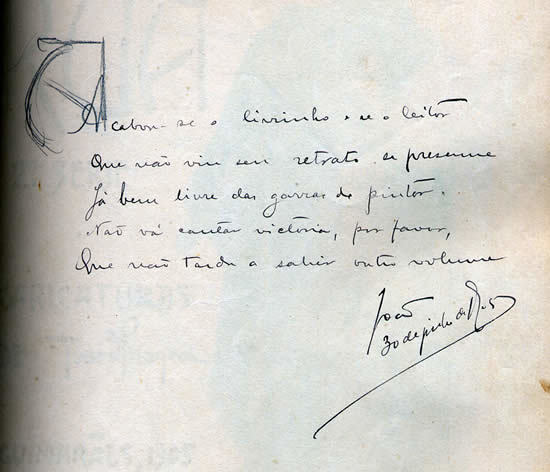 Acabou-se o livrinho e se o leitor
Que não viu seu retrato se presume
Já bem livre das garras do pintor.
Não vá cantar victória, por favor,
Que não tarda a sahir outro volume
João